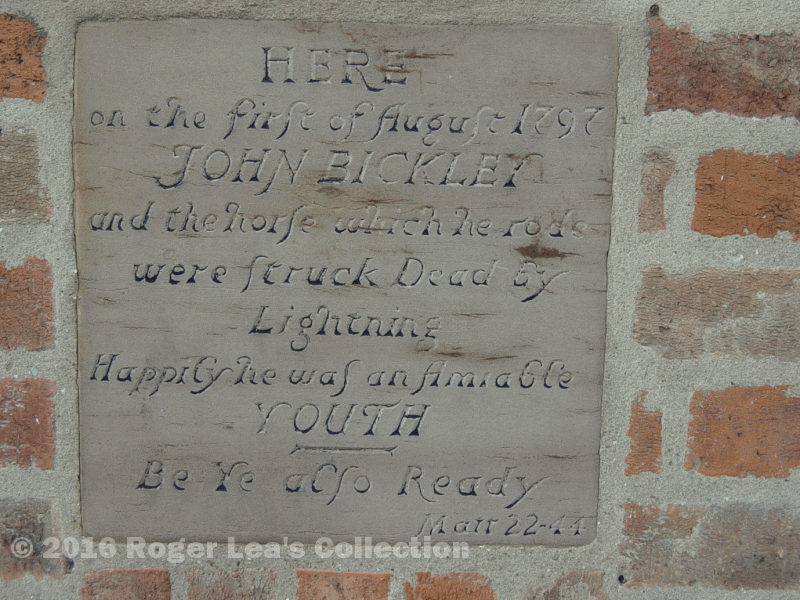 HERE
on the firſt of Auguſt 1797
JOHN BICKLEY
and the horſe which he rode
were ſtruck Dead by
Lightning
Happily he was an Amiable
YOUTH
Be Ye alſo Ready
Matt 22-44
© 2016 Roger Lea's Collection